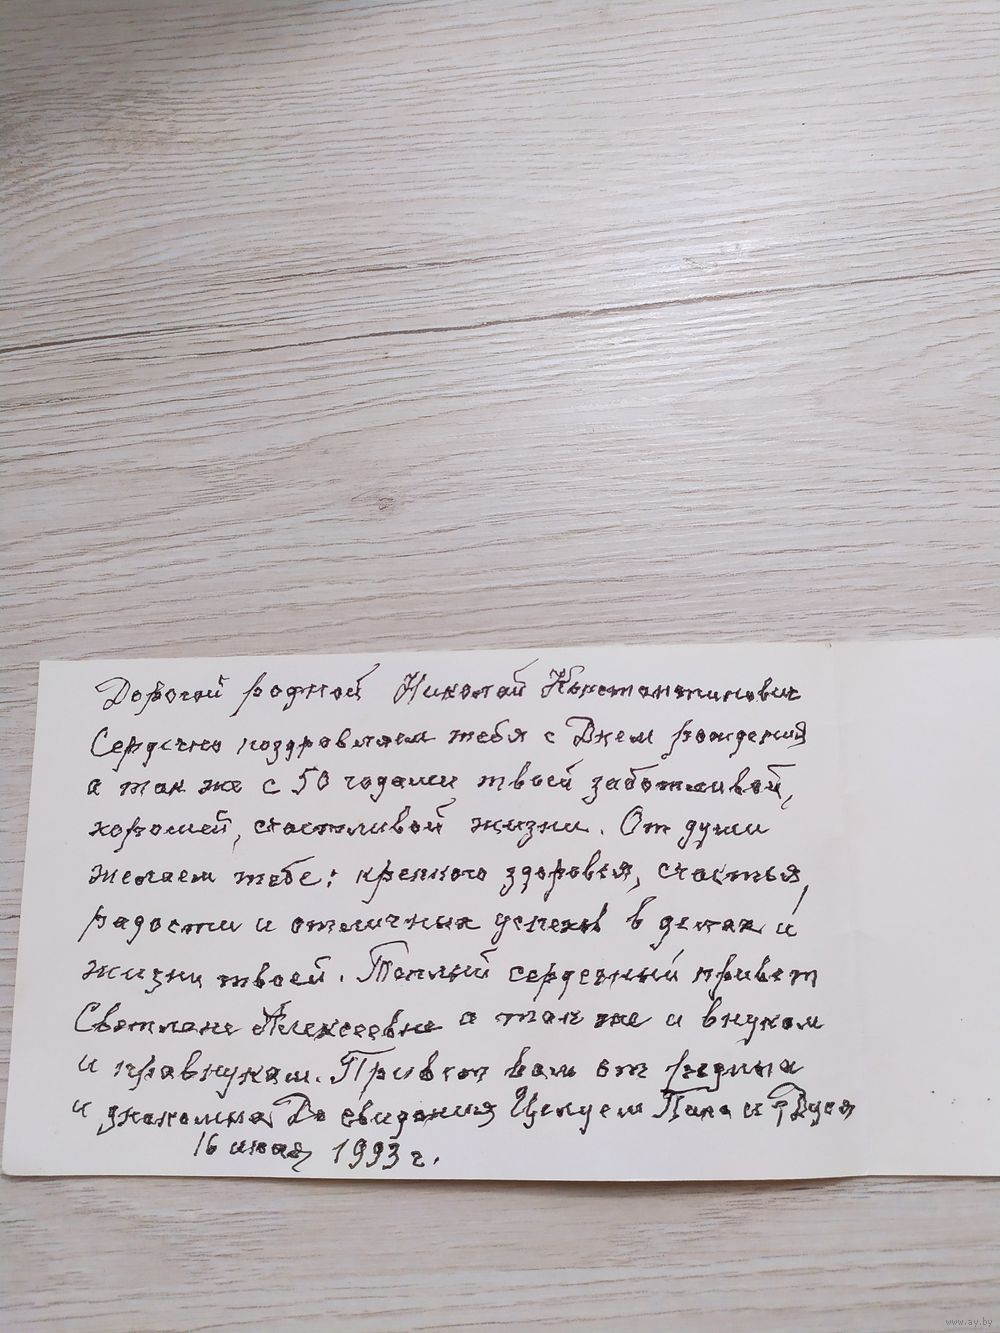 Дорогой родной Николай Константинович
Сердечно поздравляем тебя с Днем рождения
а так же с 50 годами твоей заботливой,
хорошей, счастливой жизни. От души
желаем тебе: крепкого здоровья, счастья,
радости и отличных успехов в делах и
жизни твоей. Теплый сердечный привет
Светлане Алексеевне а так же и внукам
и правнукам. Привет вам от родных
и знакомых До свидания Целуем Папа и
16 июня 1993 г.
www.ay.by